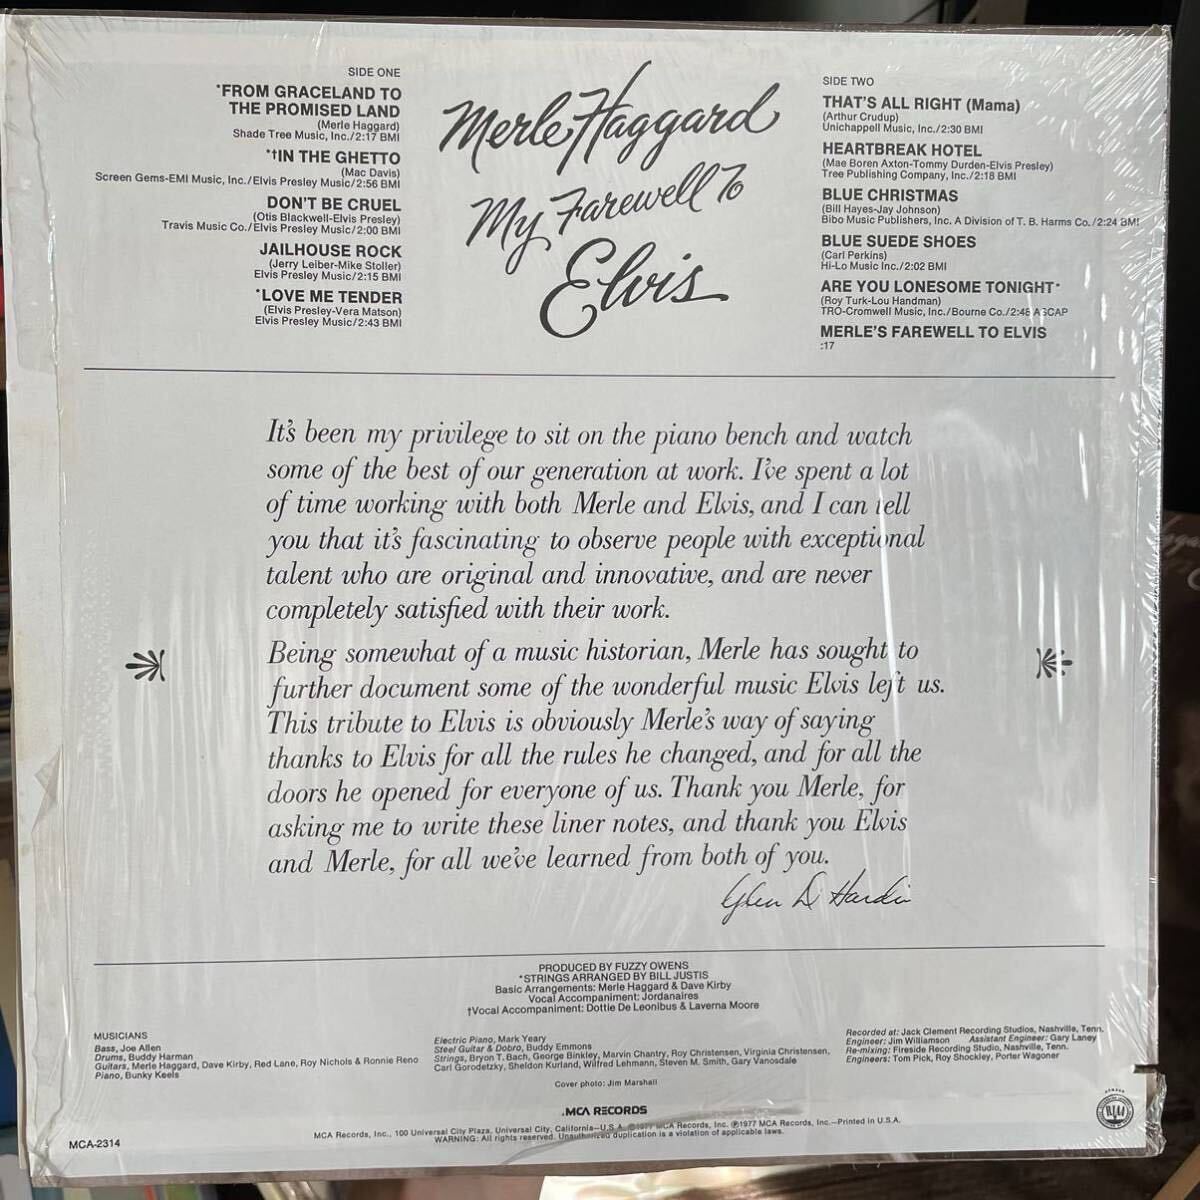 SIDE ONE
*FROM GRACELAND TO
THE PROMISED LAND
(Merle Haggard)
Shade Tree Music, Inc./2:17 BMI
*†IN THE GHETTO
(Mac Davis)
Screen Gems-EMI Music, Inc./Elvis Presley Music/2:56 BMI
DON'T BE CRUEL
(Otis Blackwell-Elvis Presley)
Travis Music Co./Elvis Presley Music/2:00 BMI
JAILHOUSE ROCK
(Jerry Leiber-Mike Stoller)
Elvis Presley Music/2:15 BMI
*LOVE ME TENDER
(Elvis Presley-Vera Matson)
Elvis Presley Music/2:43 BMI
Merle Haggard
My Farewell To
Elvis
SIDE TWO
THAT'S ALL RIGHT (Mama)
(Arthur Crudup)
Unichappell Music, Inc./2:30 BMI
HEARTBREAK HOTEL
(Mae Boren Axton-Tommy Durden-Elvis Presley)
Tree Publishing Company, Inc./2:18 BMI
BLUE CHRISTMAS
(Bill Hayes-Jay Johnson)
Bibo Music Publishers, Inc. A Division of T. B. Harms Co./2:24 BMI
BLUE SUEDE SHOES
(Carl Perkins)
Hi-Lo Music Inc./2:02 BMI
ARE YOU LONESOME TONIGHT*
(Roy Turk-Lou Handman)
TRO-Cromwell Music, Inc./Bourne Co./2:48 ASCAP
MERLE'S FAREWELL TO ELVIS
:17
It's been my privilege to sit on the piano bench and watch
some of the best of our generation at work. I've spent a lot
of time working with both Merle and Elvis, and I can tell
you that it's fascinating to observe people with exceptional
talent who are original and innovative, and are never
completely satisfied with their work.
Being somewhat of a music historian, Merle has sought to
further document some of the wonderful music Elvis left us.
This tribute to Elvis is obviously Merle's way of saying
thanks to Elvis for all the rules he changed, and for all the
doors he opened for everyone of us. Thank you Merle, for
asking me to write these liner notes, and thank you Elvis
and Merle, for all we've learned from both of you.
Glen D Hardin
PRODUCED BY FUZZY OWENS
*STRINGS ARRANGED BY BILL JUSTIS
Basic Arrangements: Merle Haggard & Dave Kirby
Vocal Accompaniment: Jordanaires
†Vocal Accompaniment: Dottie De Leonibus & Laverna Moore
MUSICIANS
Bass, Joe Allen
Drums, Buddy Harman
Guitars, Merle Haggard, Dave Kirby, Red Lane, Roy Nichols & Ronnie Reno
Piano, Bunky Keels
Electric Piano, Mark Yeary
Steel Guitar & Dobro, Buddy Emmons
Strings, Bryon T. Bach, George Binkley, Marvin Chantry, Roy Christensen, Virginia Christensen,
Carl Gorodetzky, Sheldon Kurland, Wilfred Lehmann, Steven M. Smith, Gary Vanosdale
Recorded at: Jack Clement Recording Studios, Nashville, Tenn.
Engineer: Jim Williamson Assistant Engineer: Gary Laney
Re-mixing: Fireside Recording Studio, Nashville, Tenn.
Engineers: Tom Pick, Roy Shockley, Porter Wagoner
Cover photo: Jim Marshall
MCA RECORDS
MCA Records, Inc., 100 Universal City Plaza, Universal City, California—U.S.A. ©1977 MCA Records, Inc. ℗1977 MCA Records, Inc.—Printed in U.S.A.
WARNING: All rights reserved. Unauthorized duplication is a violation of applicable laws.
MCA-2314